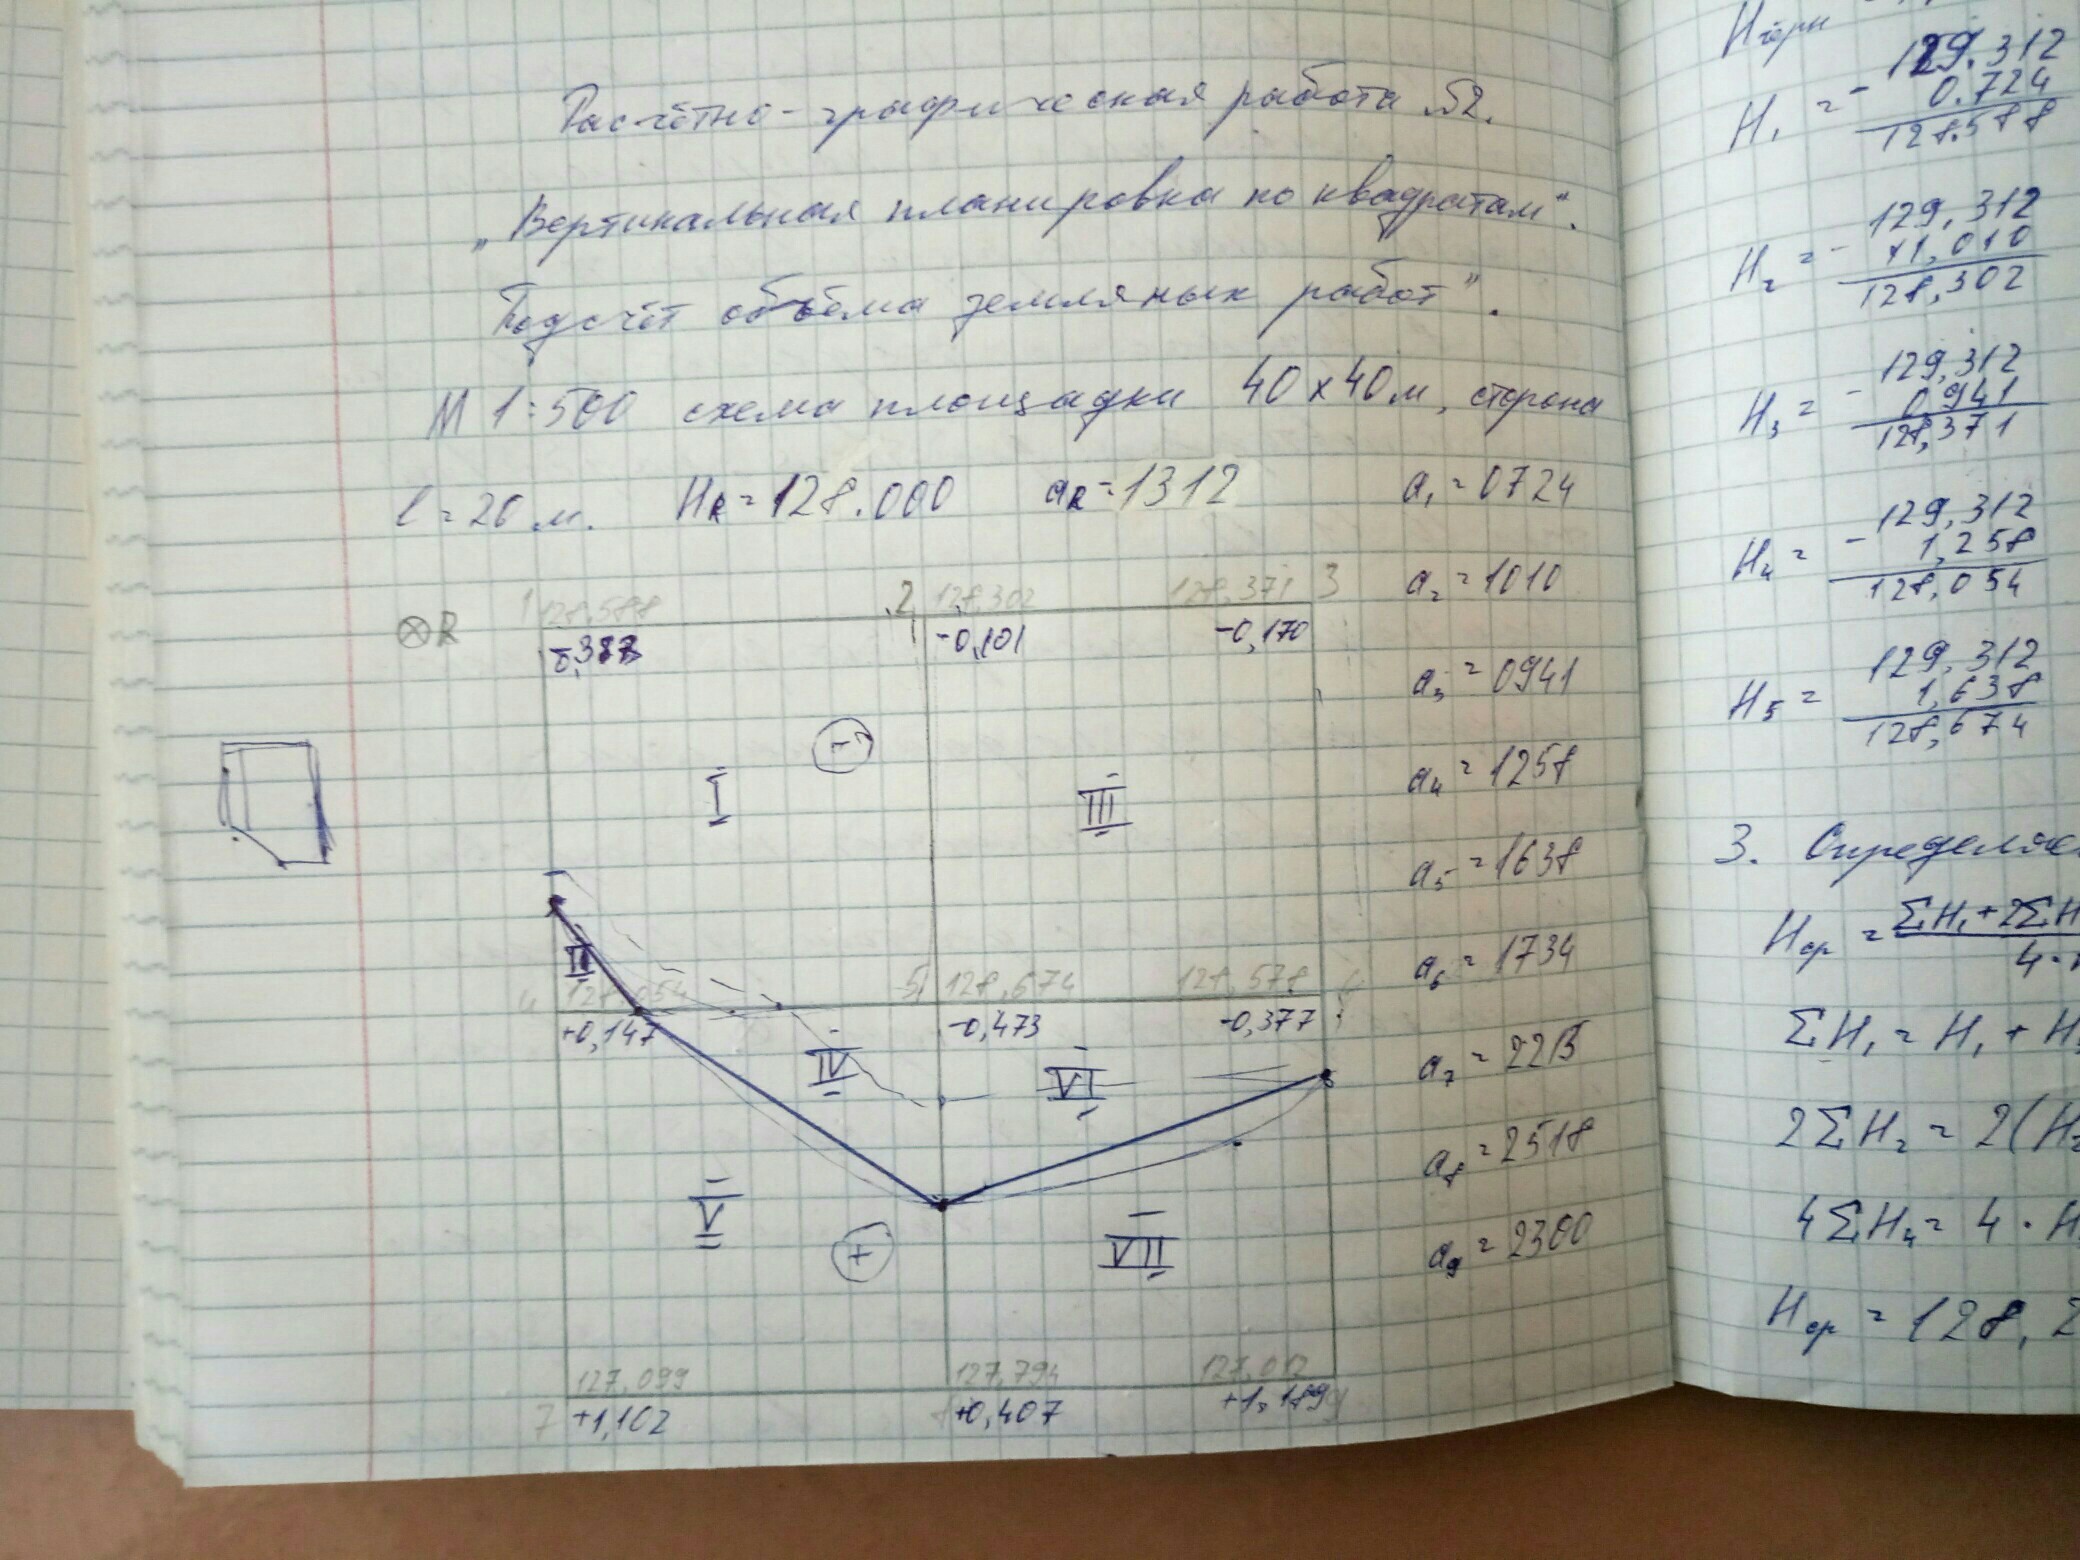 Расчётно-графическая работа №2.
„Вертикальная планировка по квадратам".
Подсчёт объёма земляных работ".
М 1:500 схема площадки 40х40м, сторона
l = 20 м. HR = 128.000 aR = 1312 a1 = 0724
a2 = 1010
a3 = 0941
a4 = 1258
a5 = 1638
a6 = 1734
a8 = 2518
a9 = 2300
R 1 128,588 2 128,302 128,371 3
-0,101 -0,170
-
I III
II
4 128,054 5 128,674 128,578
+0,147 -0,473 -0,377
IV VI
V VII
+
127,099 127,794 127,012
7 +1,102 +0,407 +1,189
Нчерн
H1 = - 129.312
0.724
128.588
H2 = - 129,312
1,010
128,302
H3 = - 129,312
0,941
128,371
H4 = - 129,312
1,258
128,054
H5 = 129,312
1,638
128,674
3. Определяе
Hср = ΣH1 + 2ΣH
4·
ΣH1 = H1 + H
2ΣH2 = 2(H2
4ΣH4 = 4 · H
Hср = 128,2